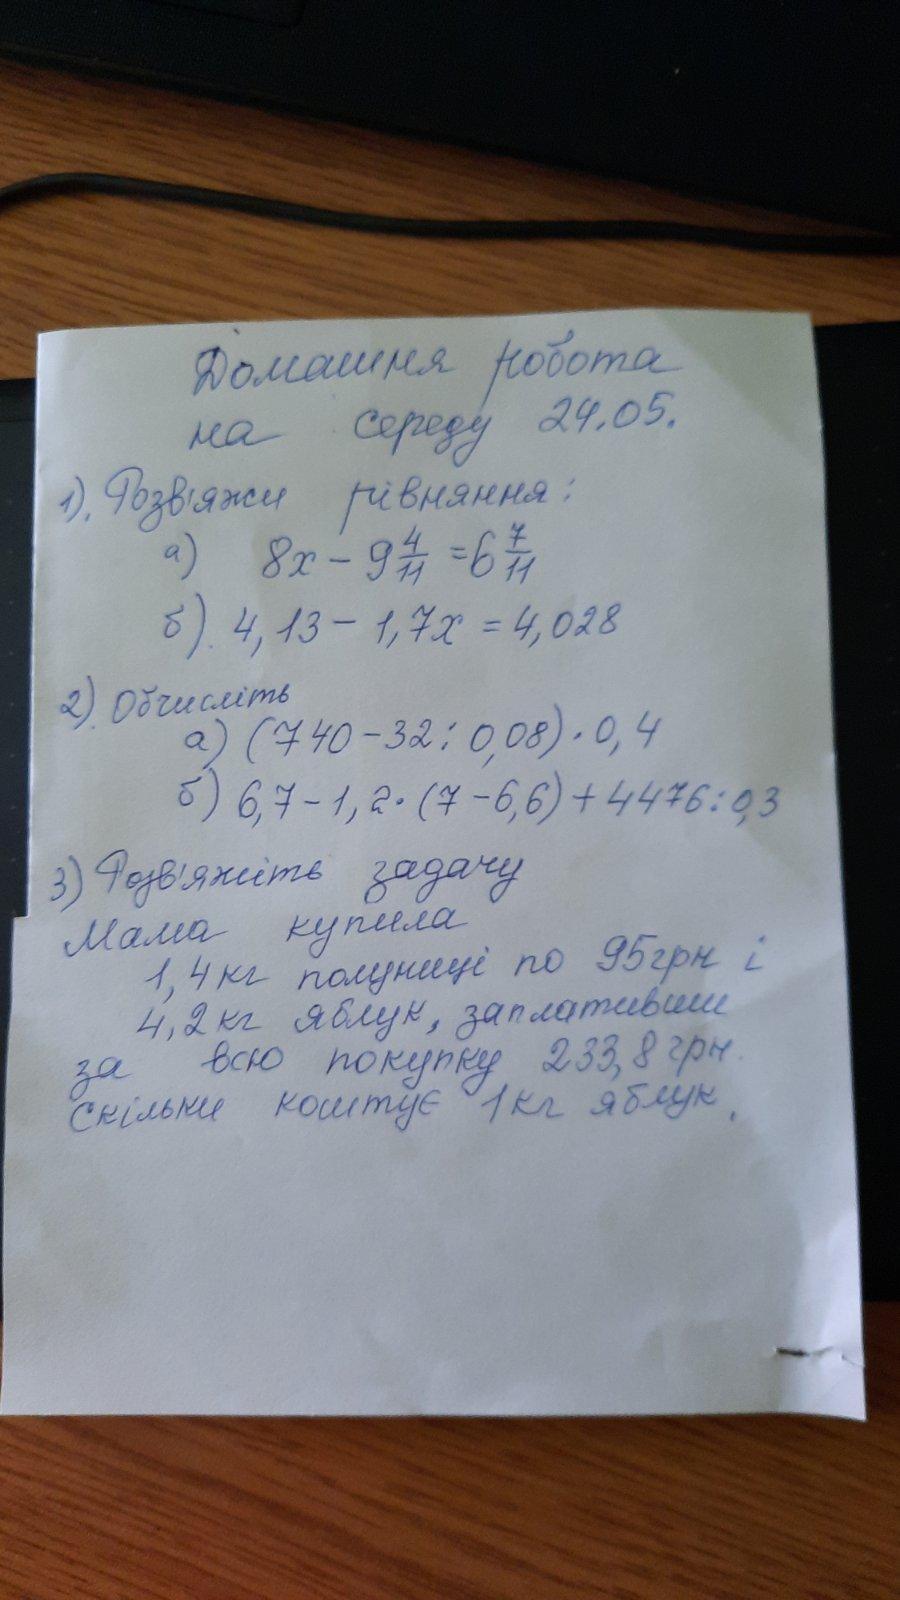 Домашня робота
на середу 24.05.
1). Розв'яжи рівняння:
а) 8x - 9 4/11 = 6 7/11
б). 4,13 - 1,7x = 4,028
2). Обчисліть
а) (740 - 32 : 0,08) · 0,4
б) 6,7 - 1,2 · (7 - 6,6) + 4476 : 0,3
3) Розв'яжіть задачу
Мама купила
1,4 кг полуниці по 95 грн і
4,2 кг яблук, заплативши
за всю покупку 233,8 грн.
Скільки коштує 1 кг яблук.